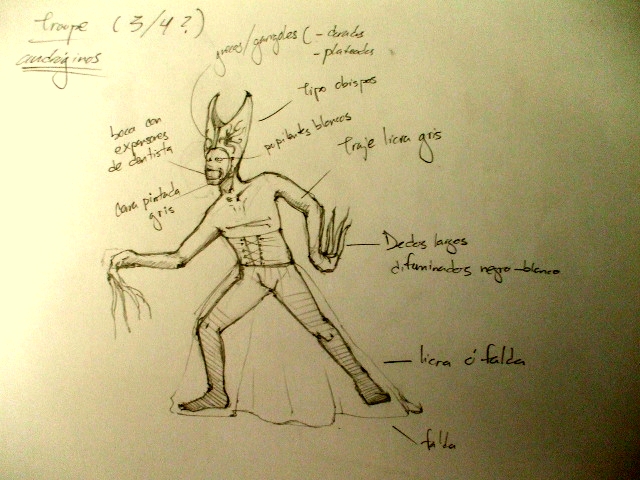 troope (3/4?)
andróginos
grecas/garigoles (- dorados
- plateados
tipo obispos
boca con
expansores
de dentista
pupilentes blancos
traje licra gris
Cara pintada
gris
Dedos largos
difuminados negro-blanco
licra ó falda
falda